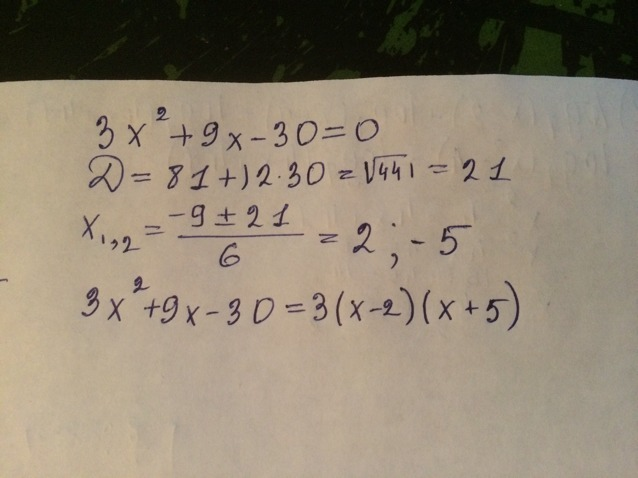 3x²+9x-30=0
D=81+12·30=√441=21
x₁,₂=(-9±21)/6=2;-5
3x²+9x-30=3(x-2)(x+5)